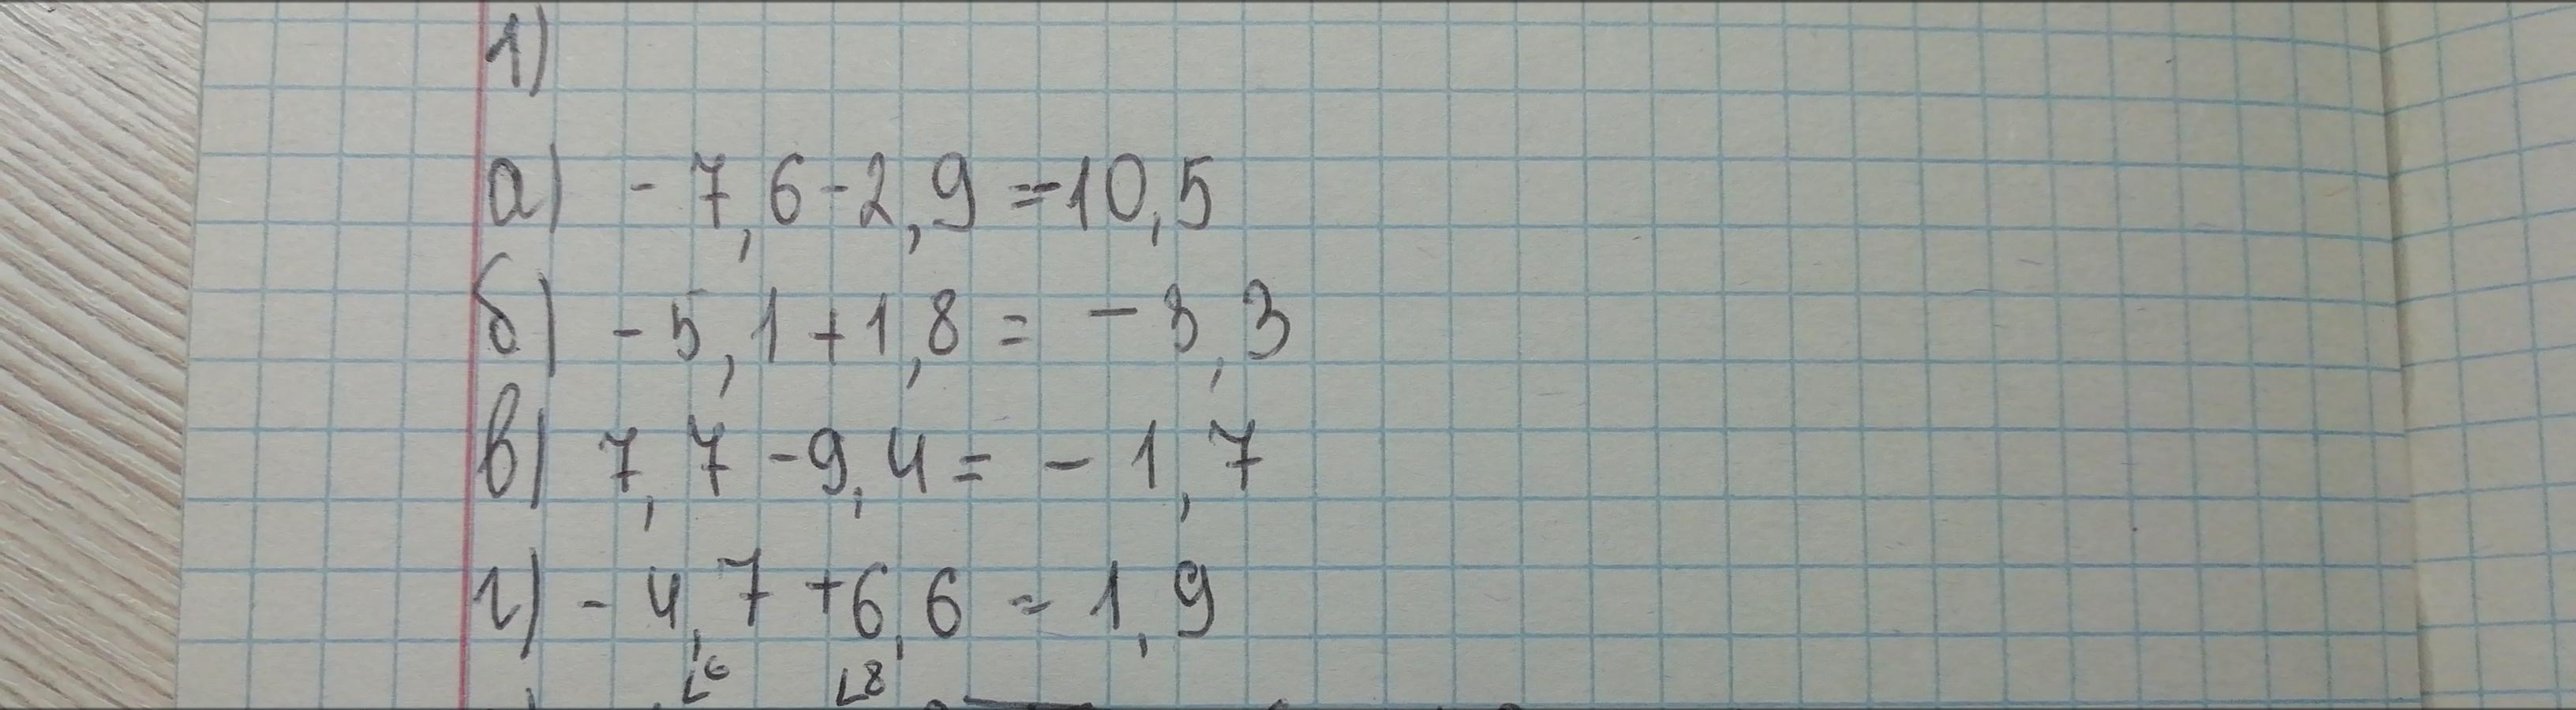 1)
а) - 7,6 - 2,9 = -10,5
б) - 5,1 + 1,8 = - 3,3
в) 7,7 - 9,4 = - 1,7
г) - 4,7 + 6,6 = 1,9
6 8